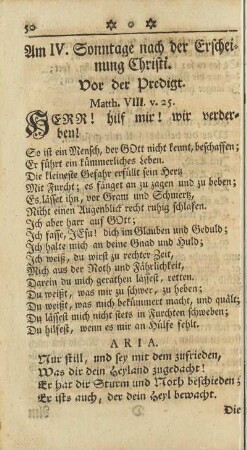 50
Am IV. Sonntage nach der Erschei-
nung Christi.
Vor der Predigt.
Matth. VIII. v. 25.
HERR! hilf mir! wir verder-
ben!
So ist ein Mensch, der GOtt nicht kennt, beschaffen;
Er führt ein kümmerliches Leben.
Die kleineste Gefahr erfüllt sein Hertz
Mit Furcht; es fänget an zu zagen und zu beben;
Es lässet ihn, vor Gram und Schmertz,
Nicht einen Augenblick recht ruhig schlafen.
Ich aber harr auf GOtt;
Ich fasse, JEsu! dich im Glauben und Geduld;
Ich halte mich an deine Gnad und Huld;
Ich weiß, du wirst zu rechter Zeit,
Mich aus der Noth und Fährlichkeit,
Darein du mich gerathen lässest, retten.
Du weißt, was mir zu schwer, zu heben;
Du weißt, was mich bekümmert macht, und quält;
Du lässest mich nicht stets in Furchten schweben;
Du hilfest, wenn es mir an Hülfe fehlt.
ARIA.
Nur still, und sey mit dem zufrieden,
Was dir dein Heyland zugedacht!
Er hat dir Sturm und Noth beschieden;
Er ists auch, der dein Heyl bewacht.
Die